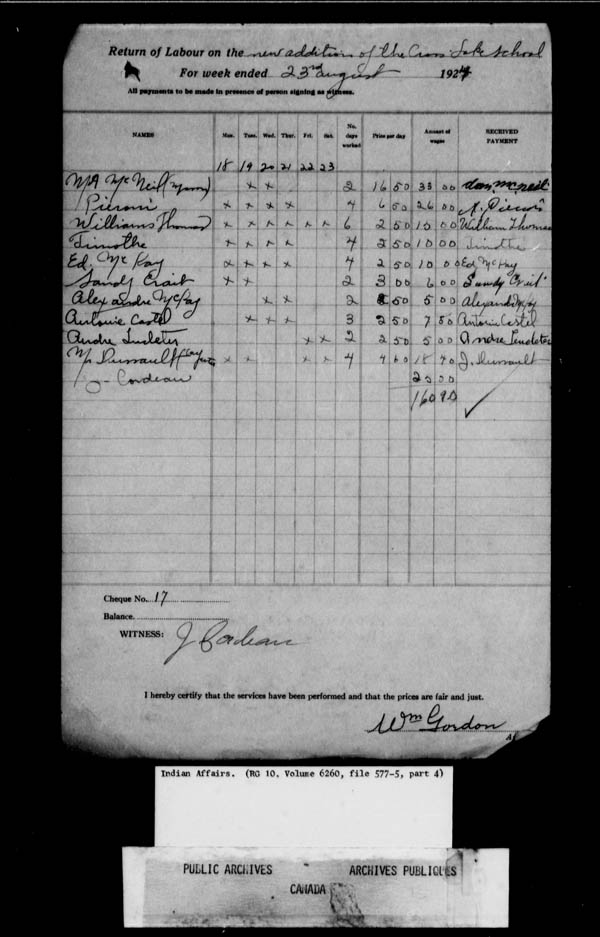 Return of Labour on the new addition of the Cross Lake school
For week ended 23rd august 1924
All payments to be made in presence of person signing as witness.
NAMES Mon. Tues. Wed. Thur. Fri. Sat. No. days worked Price per day Amount of wages RECEIVED PAYMENT
18 19 20 21 22 23
Mr A McNeil x x 2 16 50 33 00 McNeil
Pieroni x x x x 4 6 50 26 00 A. Pieroni
Williams Thomas x x x x x x 6 2 50 15 00 William Thomas
Timothe x x x x 4 2 50 10 00 Timothe
Ed. McKay x x x x 4 2 50 10 00 Ed McKay
Sandy Crait x x 2 3 00 6 00 Sandy Crait
Alexandre McKay x x 2 2 50 5 00 Alexandre McKay
Antoine Castel x x x 3 2 50 7 50 Antoine Castel
Andre x x 2 2 50 5 00 Andre
Mr Dussault x x x x 4 4 60 18 40 J. Dussault
J- Cordeau 25 00
160 90
Cheque No. 17
Balance
WITNESS: J Cordeau
I hereby certify that the services have been performed and that the prices are fair and just.
Wm Gordon
Indian Affairs. (RG 10, Volume 6260, file 577-5, part 4)
PUBLIC ARCHIVES ARCHIVES PUBLIQUES
CANADA